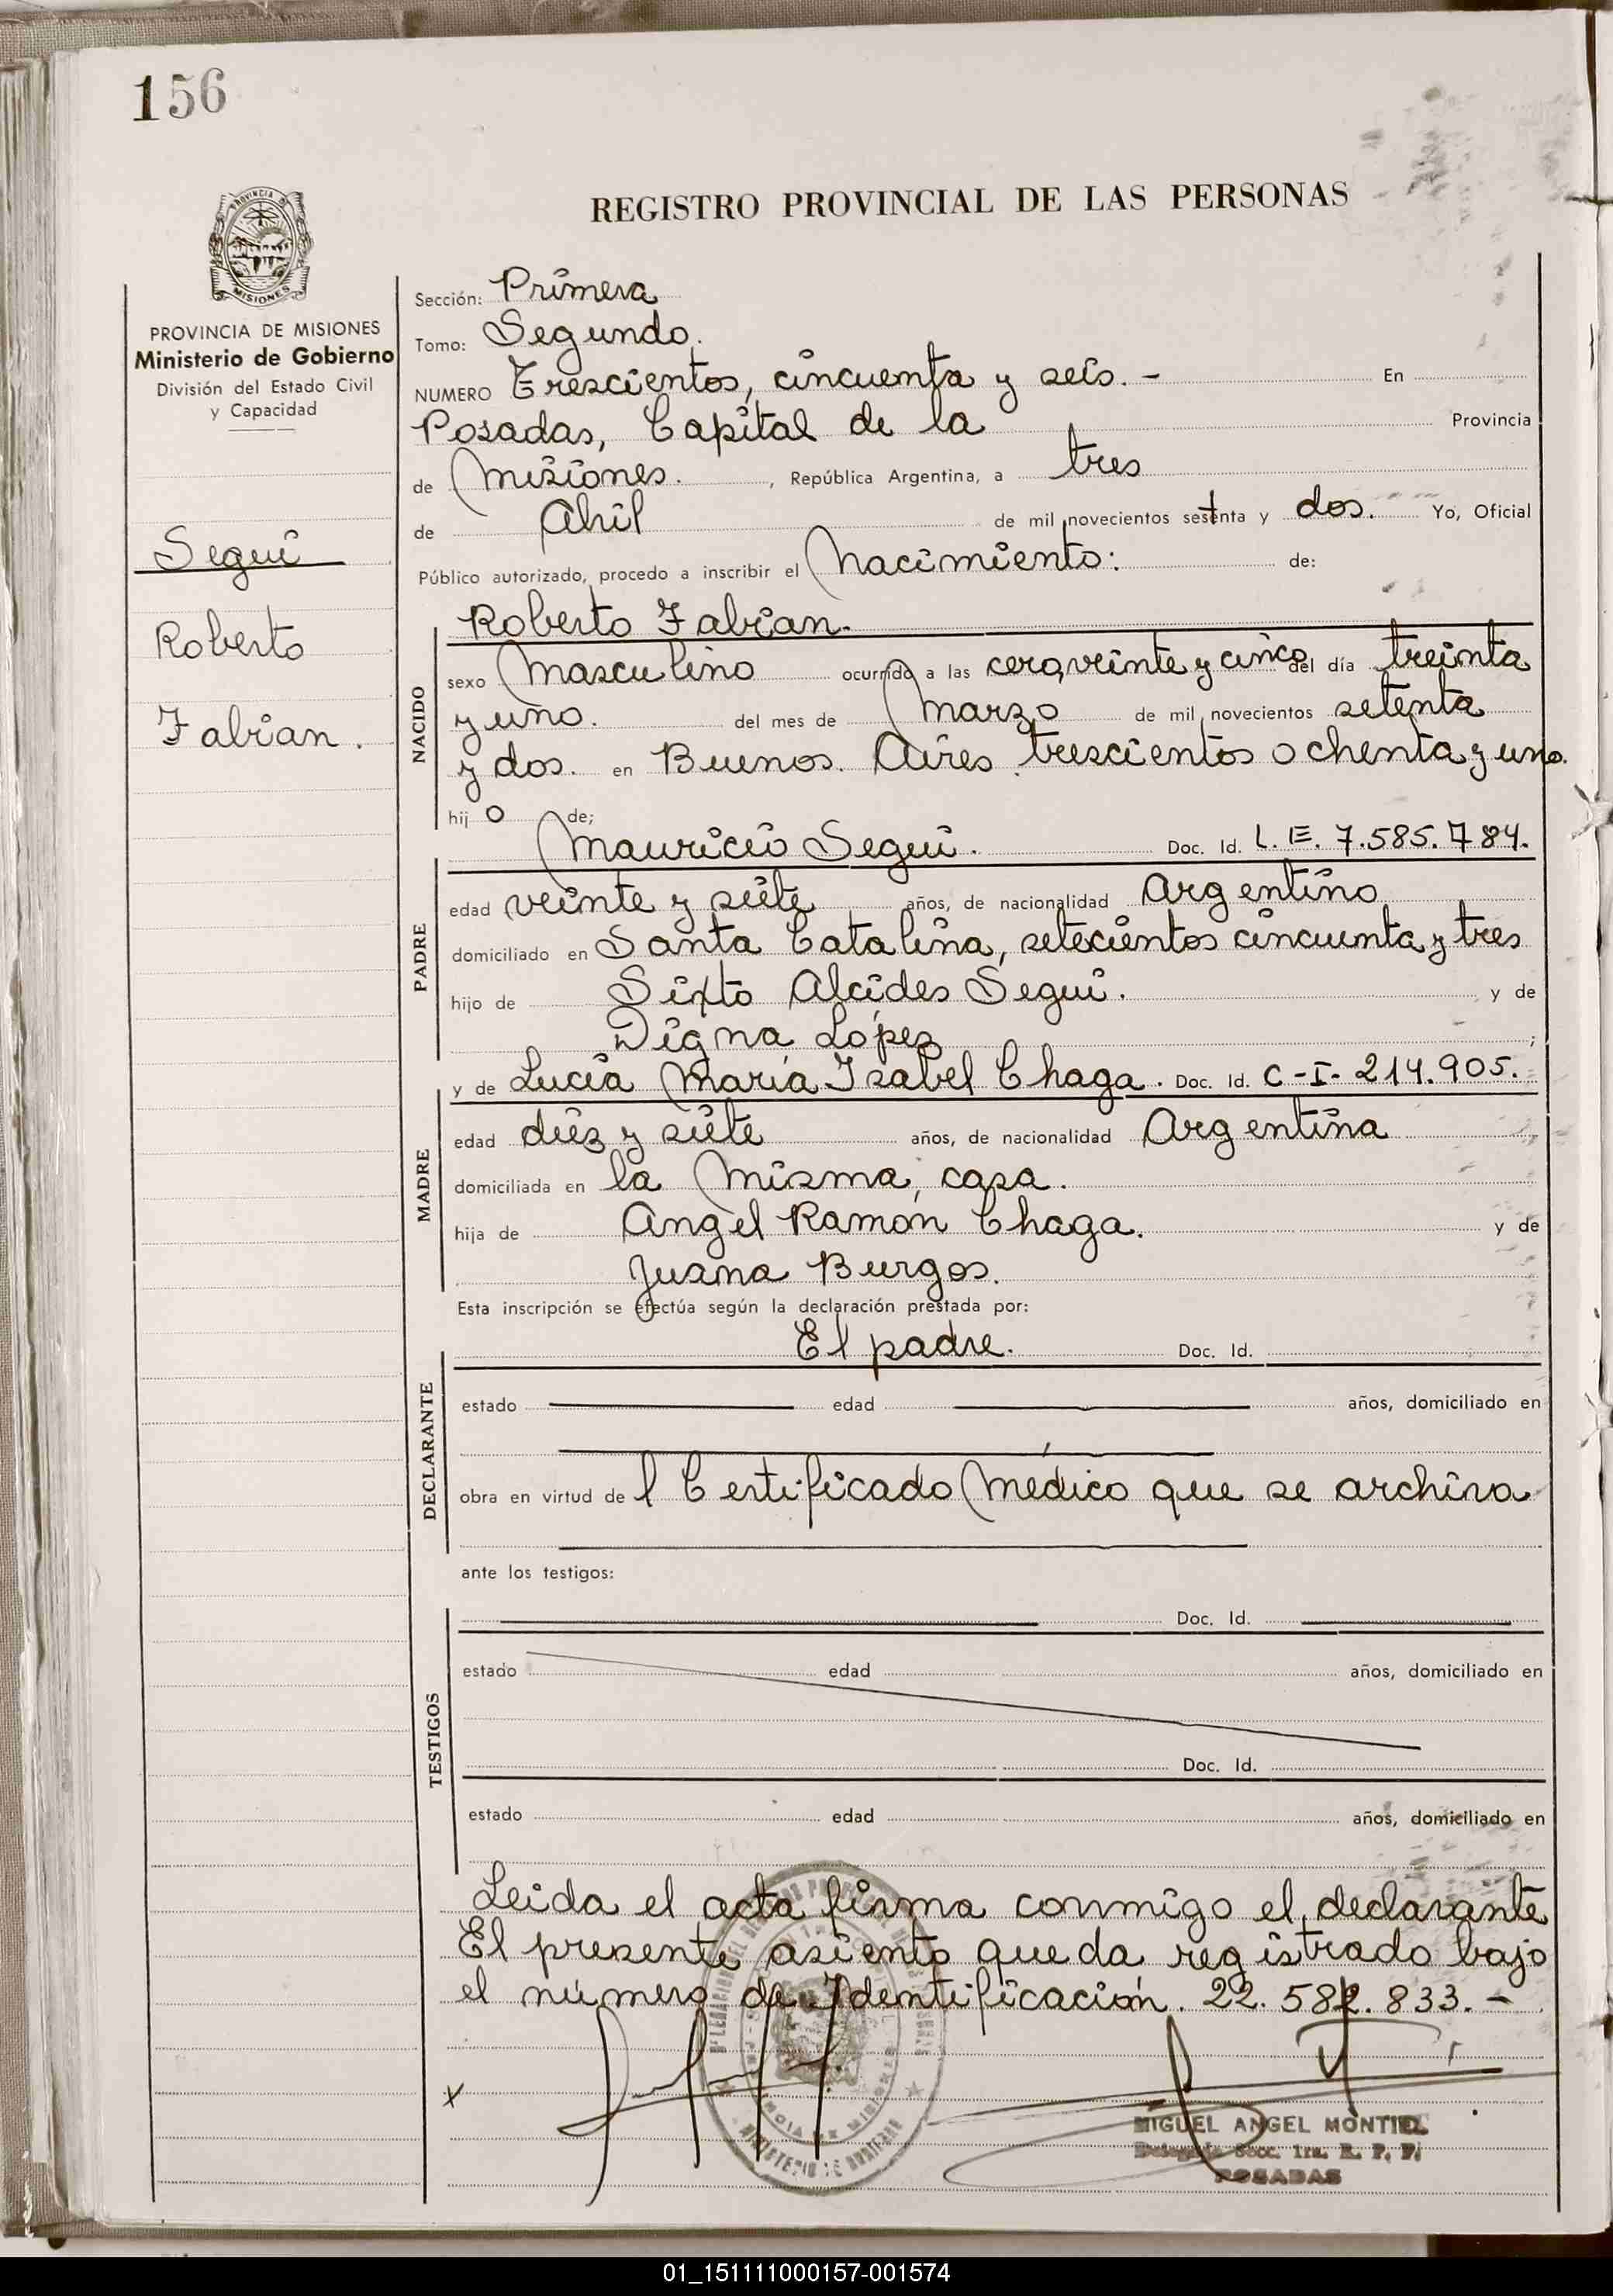 156
PROVINCIA DE
MISIONES
REGISTRO PROVINCIAL DE LAS PERSONAS
PROVINCIA DE MISIONES
Ministerio de Gobierno
División del Estado Civil
y Capacidad
Segui
Roberto
Fabian.
Sección: Primera
Tomo: Segundo.
NUMERO Trescientos, cincuenta y seis. - En
Posadas, Capital de la Provincia
de Misiones. , República Argentina, a tres
de Abril de mil novecientos setenta y dos. Yo, Oficial
Público autorizado, procedo a inscribir el Nacimiento: de:
NACIDO
Roberto Fabian.
sexo Masculino ocurrido a las cero, veinte y cinco del día treinta
y uno. del mes de Marzo de mil novecientos setenta
y dos. en Buenos. Aires trescientos ochenta y uno.
hij o de;
PADRE
Mauricio Segui. Doc. Id. L. E. 7.585.784.
edad veinte y siete años, de nacionalidad Argentino
domiciliado en Santa Catalina, setecientos cincuenta y tres
hijo de Sixto Alcides Segui. y de
Digna López ;
MADRE
y de Lucía María Isabel Chaga. Doc. Id. C-I- 214.905.
edad diez y siete años, de nacionalidad Argentina
domiciliada en la Misma, casa.
hija de Angel Ramon Chaga. y de
Juana Burgos.
Esta inscripción se efectúa según la declaración prestada por:
DECLARANTE
El padre. Doc. Id.
estado edad años, domiciliado en
obra en virtud de l Certificado Médico que se archiva
ante los testigos:
TESTIGOS
Doc. Id.
estado edad años, domiciliado en
Doc. Id.
estado edad años, domiciliado en
Leida el acta firma conmigo el declarante
El presente asiento queda registrado bajo
el número de Identificación. 22. 582. 833. -
MIGUEL ANGEL MONTIEL
Secc. 1ra. R. P. P.
POSADAS
01_151111000157-001574